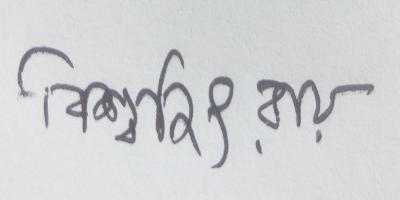 বিশ্বজিৎ রায়